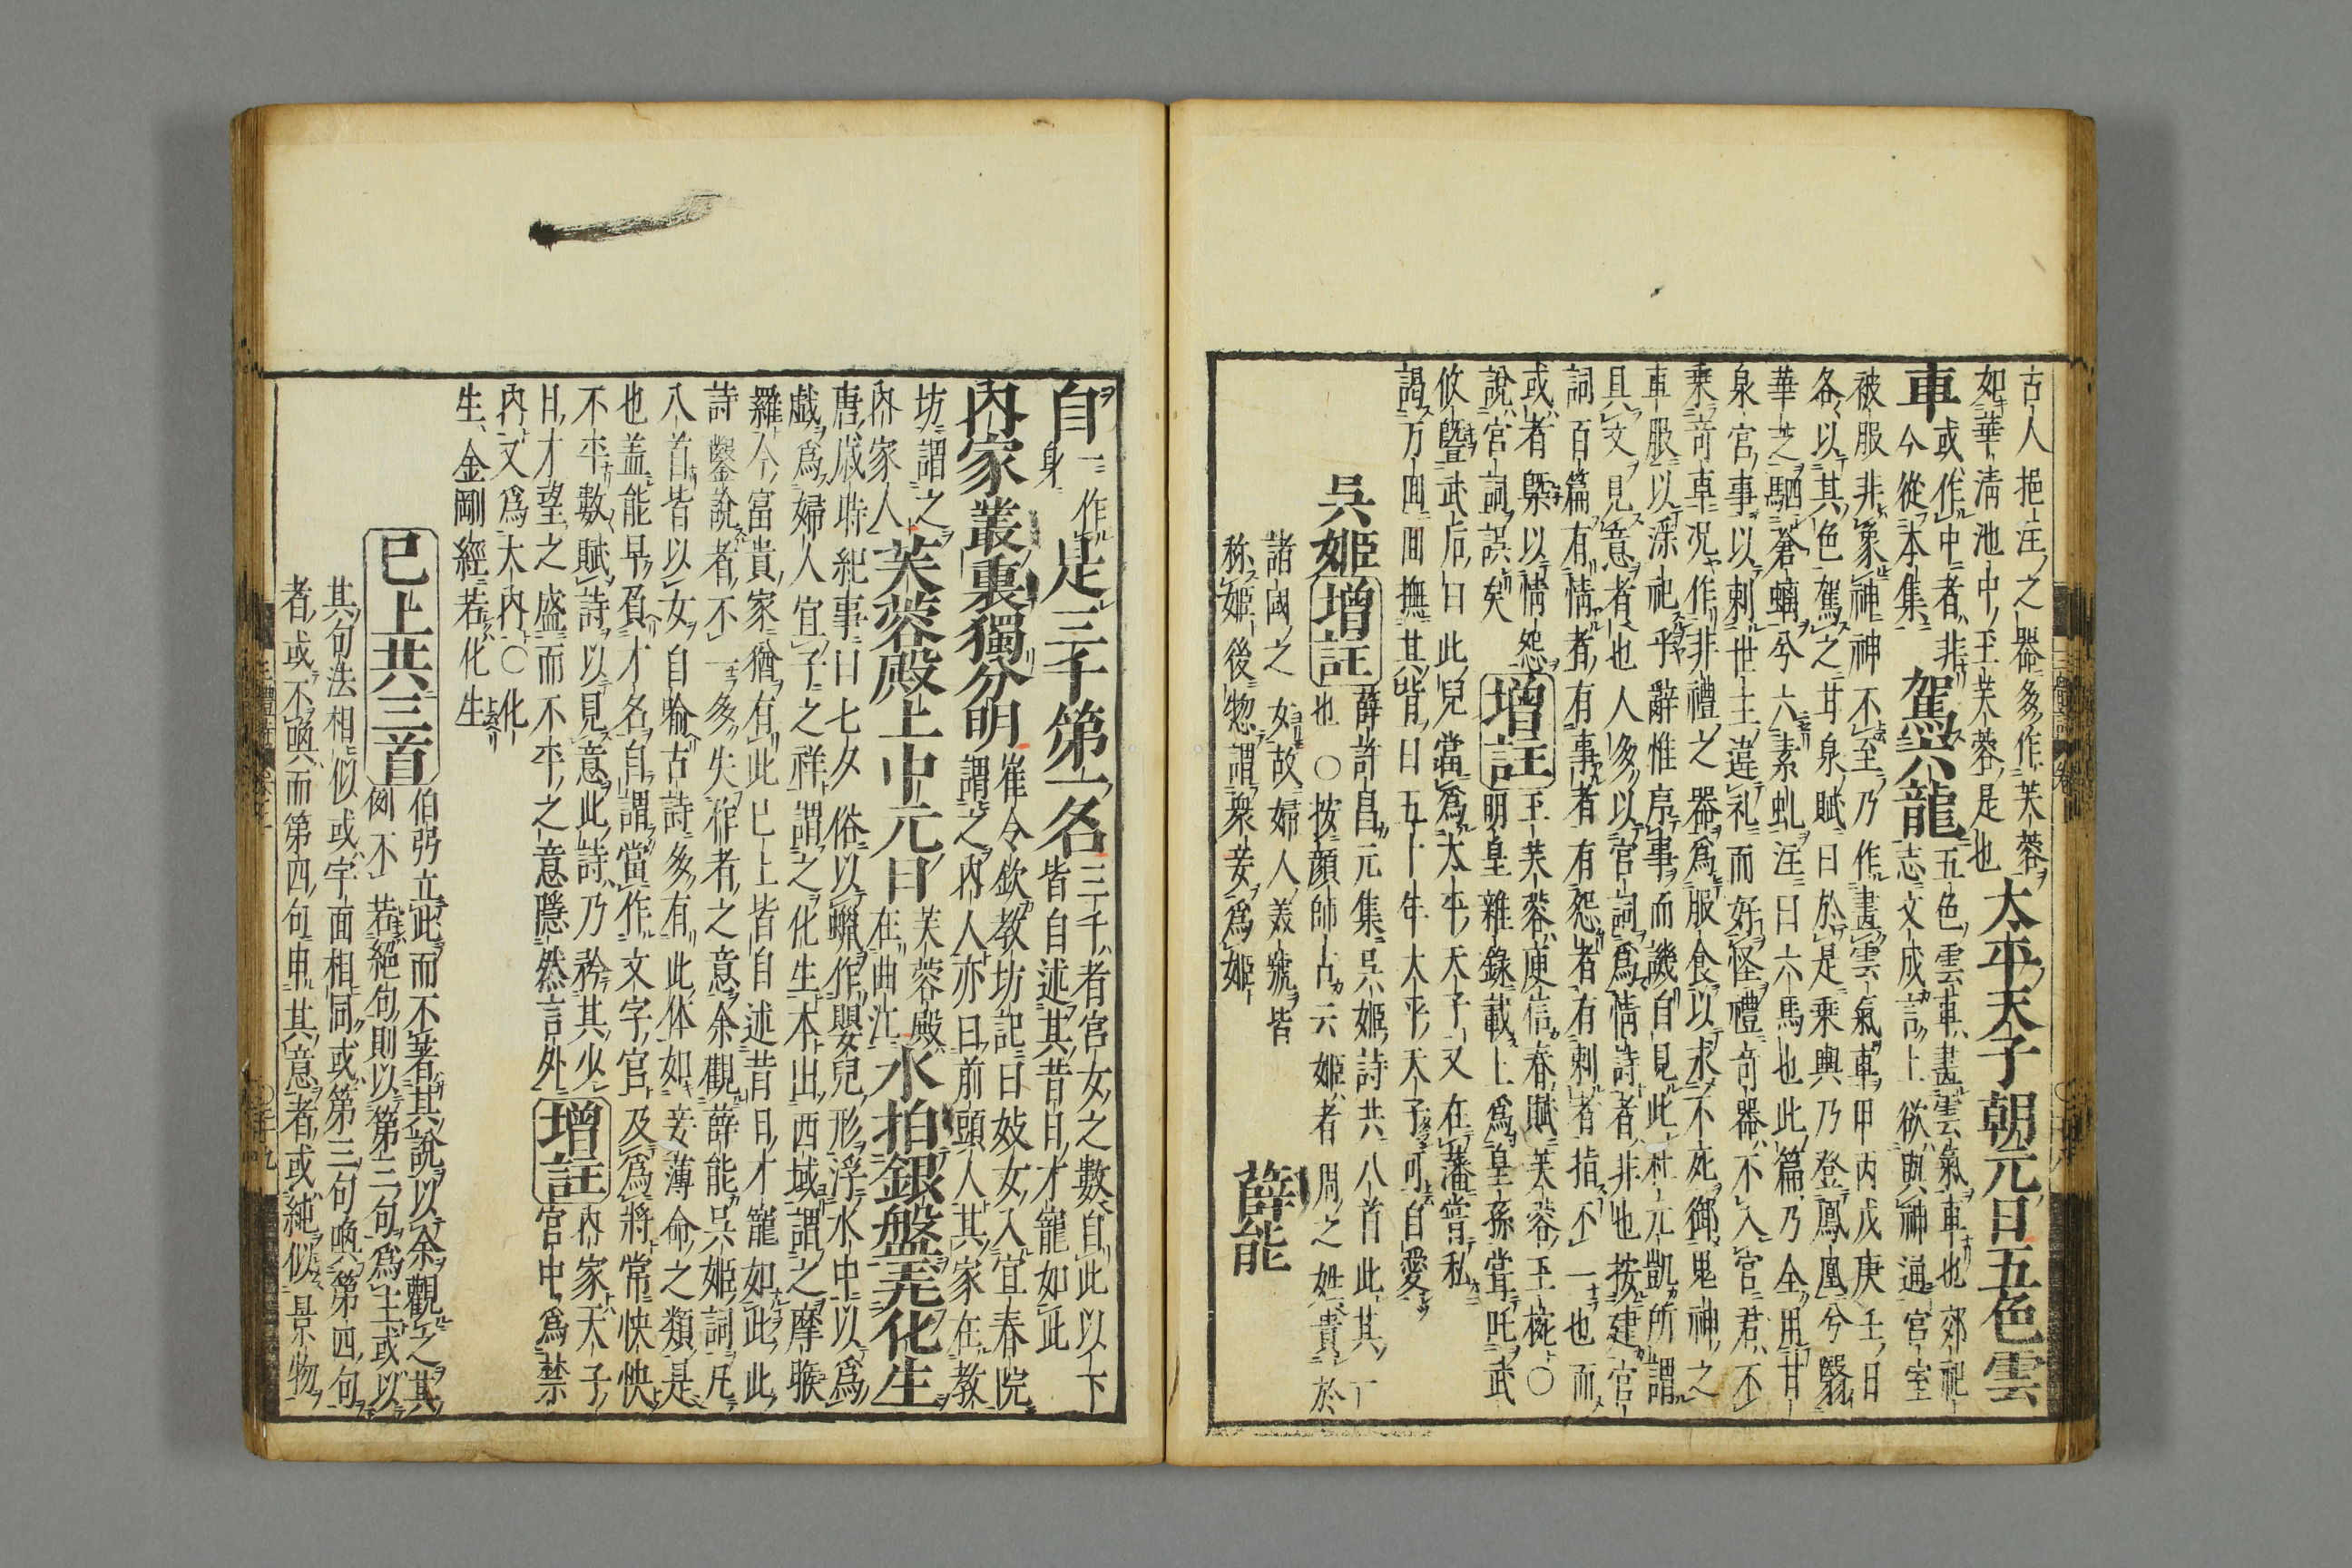 古人挹注之器多作芙蓉
如華清池中玉芙蓉是也
太平天子朝元日五色雲
車
或作中者非
今從本集
駕六龍
五色雲車畫雲氣車也郊祀
志文成言上欲與神通宮室
被服非象神神不至乃作畫雲氣車甲丙戊庚壬日
各以其色駕之甘泉賦曰於是乘輿乃登鳳凰兮翳
華芝駟蒼螭兮六素虬注曰六馬也此篇乃全用甘
泉宮事以刺世主違礼而好怪禮奇器不入宮君不
乘奇車况作非禮之器為服食以求不死御鬼神之
車服以深祀乎辭惟序事而譏自見此杜元凱所謂
具文見意者也人多以宮詞為情詩者非也按建宮
詞百篇有情者有事者有怨者有刺者指不一也而
或者槩以情怨
說宮詞誤矣
增註
玉芙蓉庾信春賦芙蓉玉椀○
明皇雜錄載上為皇孫嘗叱武
攸曁武后曰此兒當為太平天子又在藩嘗私
謁万回回撫其背曰五十年太平天子可自愛
吳姬
增註
薛許昌元集吳姬詩共八首此其一
也○按顏師古云姬者周之姓貴於
諸國之女故婦人美號皆
称姬後惣謂衆妾為姬
薛能
自
一作
身
是三千第一名
三千者宮女之數自此以下
皆自述其昔日才寵如此
內家叢裏獨分明
崔令欽教坊記曰妓女入宜春院
謂之內人亦曰前頭人其家在教
坊謂之
內家人
芙蓉殿上中元日
芙蓉殿
在曲江
水拍銀盤弄化生
唐歲時紀事曰七夕俗以蠟作嬰兒形浮水中以為
戲為婦人宜子之祥謂之化生本出西域謂之摩睺
羅今富貴家猶有此已上皆自述昔日才寵如此此
詩鑿說者不一多失作者之意余觀薛能吳姬詞凡
八首皆以女自喩古詩多有此体如妾薄命之類是
也盖能早負才名自謂當作文字官及為將常怏怏
不平數賦詩以見意此詩乃矜其少
日才望之盛而不平之意隱然言外
增註
內家天子
宮中為禁
內又為大內○化
生金剛經若化生
已上共三首
伯弜立此而不著其說以余觀之其
例不若絕句則以第三句為主或以
其句法相似或字面相同或第三句喚第四句
者或不喚而第四句申其意者或純似景物